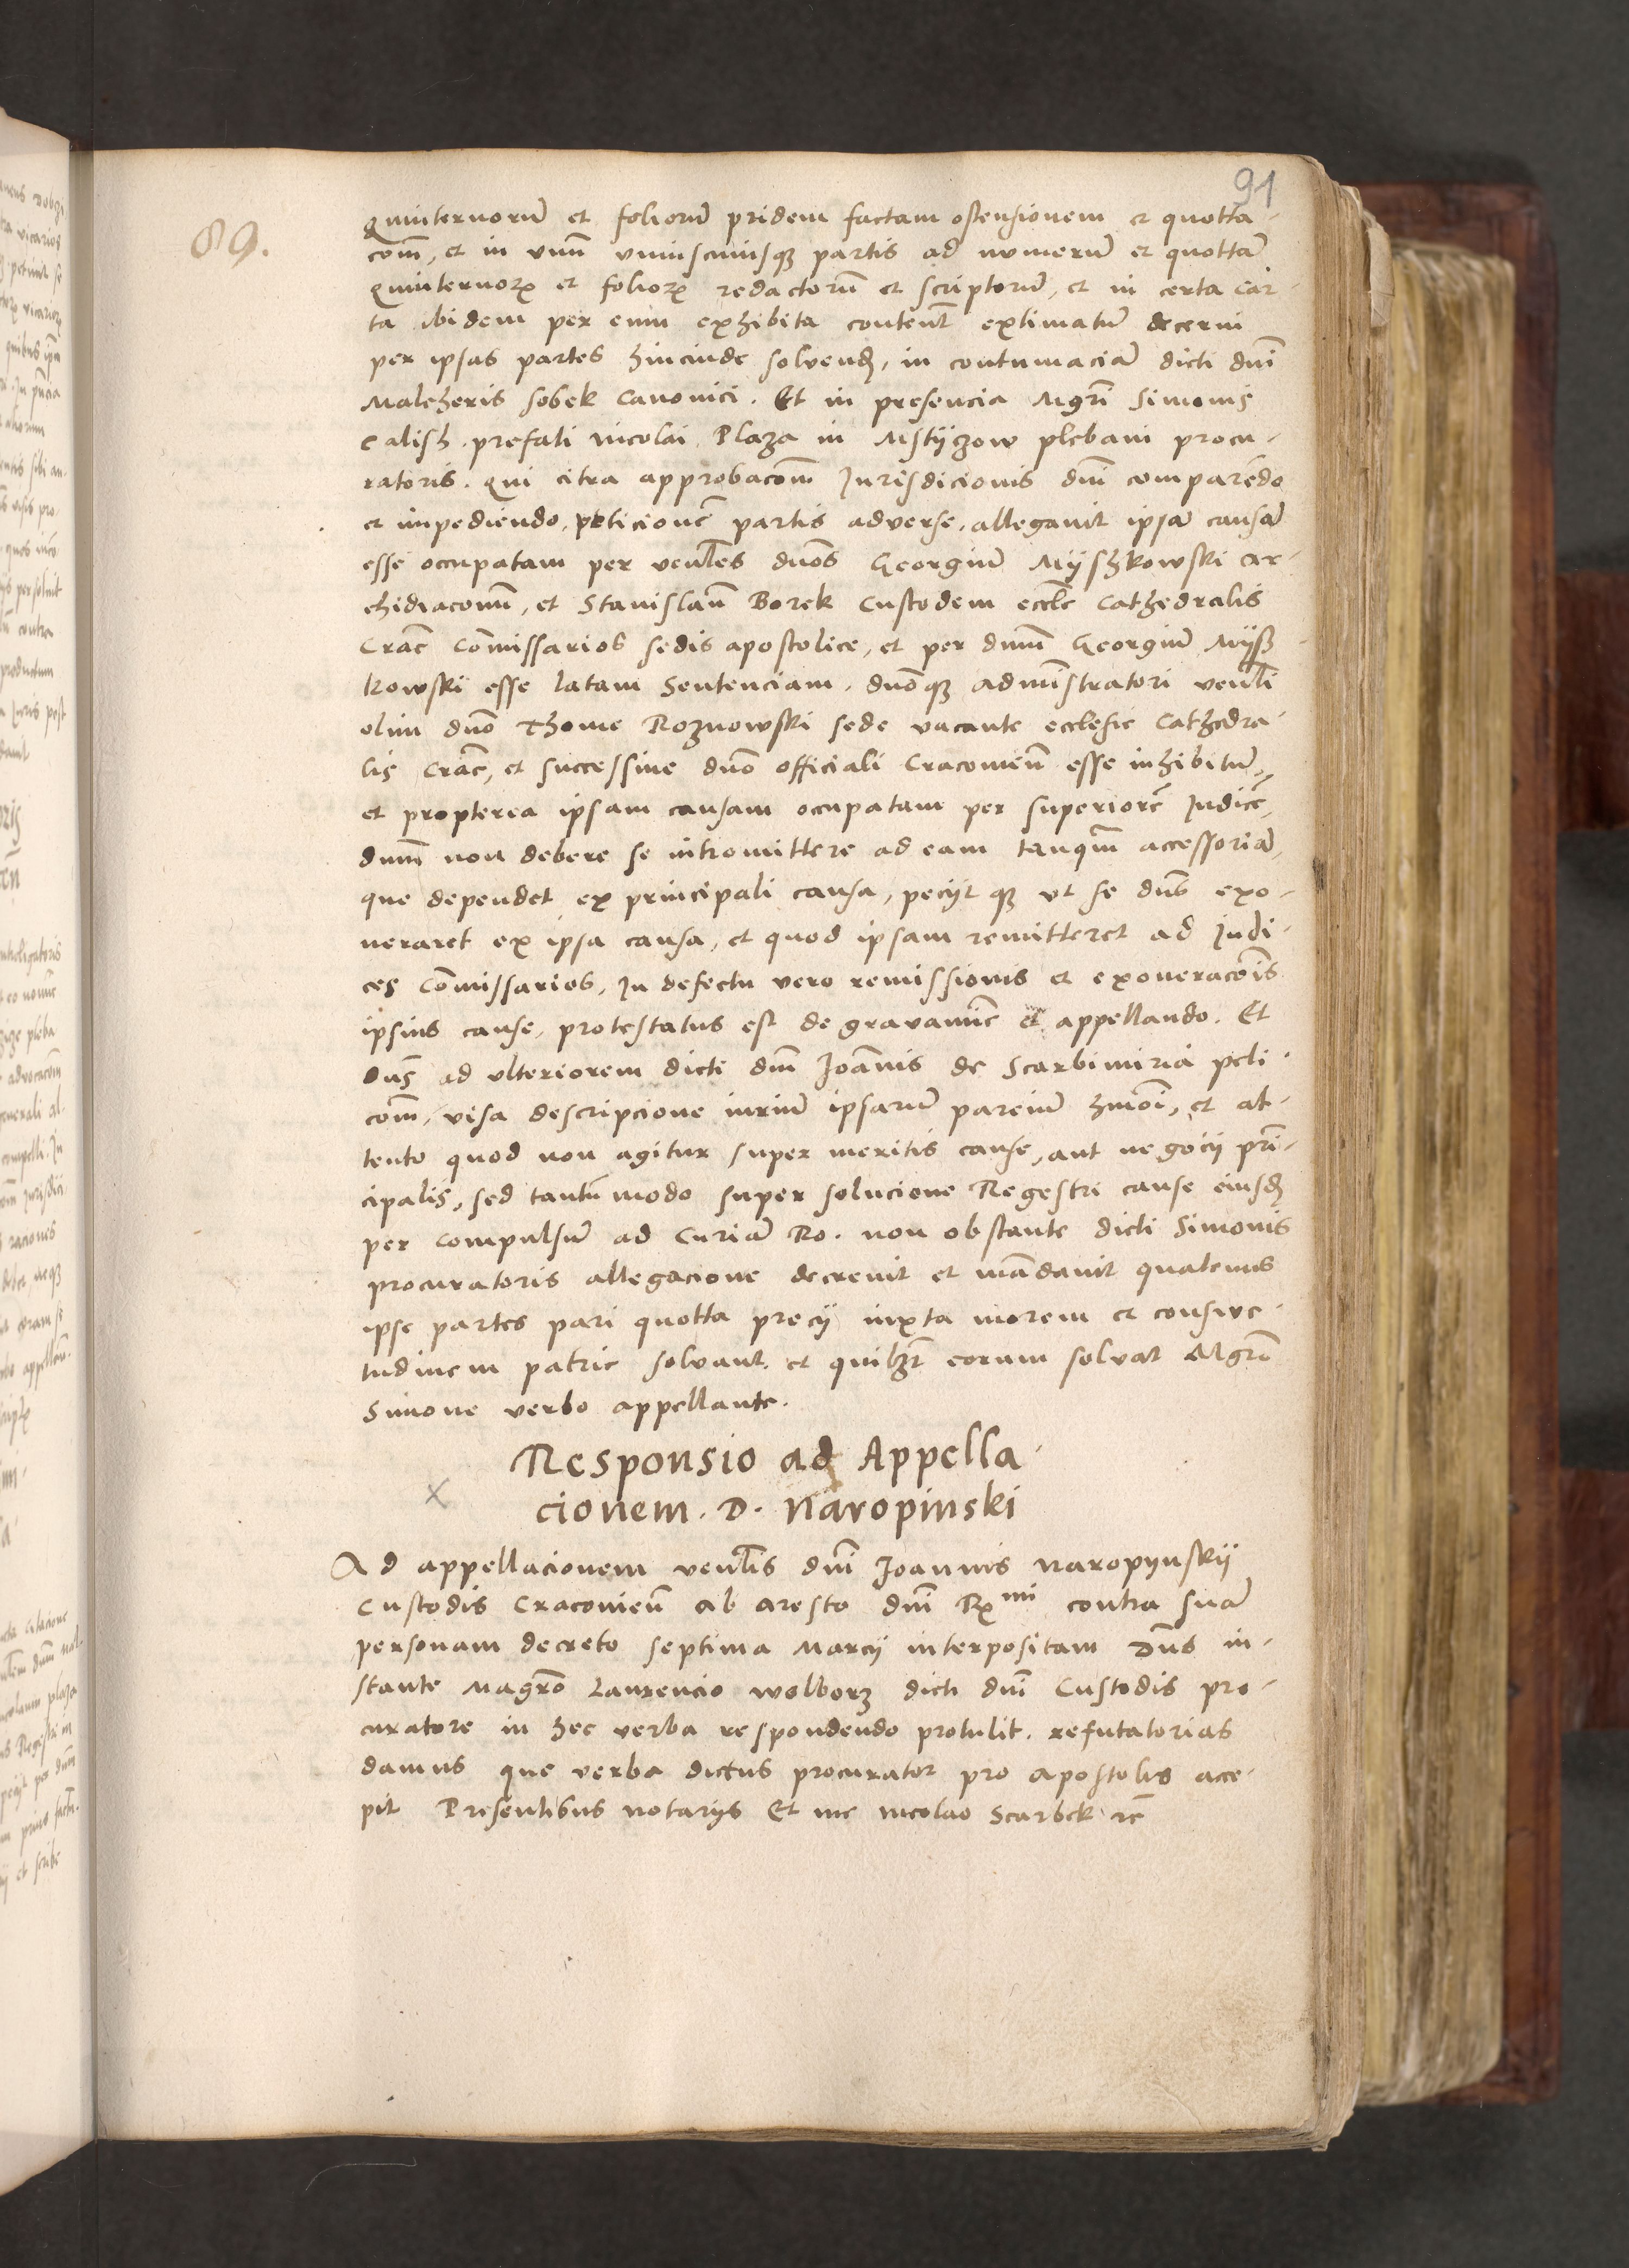 91
89.
quinternorū et foliorū pridem factam ostensionem et quotta-
com̄, et in unū uniuscuiusq partis ad numerū et quottā
quinternorꝝ et foliorꝝ redactorū et scriptorū, et in certa car-
ta ibidem per eum exhibita content̄ extimatū decerni
per ipsas partes hincinde solvend, in contumaciā dicti dn̄i
Malcheris Sobek Canonici. Et in presencia Mgr̄i Simonis
Calish. prefati Nicolai Plaza in Mstyczow plebani procu-
ratoris. qui citra approbacom̄ Jurisdicionis dn̄i comparēdo
et impediendo, peticionē partis adverse, allegavit ipsā causā
esse occupatam per ven̄les dnōs Georgiū Myshkowski Ar-
chidiaconū, et Stanislaū Borek Custodem eccl̄e Cathedralis
Crac̄ Com̄issarios sedis apostolice, et per dnum̄ Georgiū Mysz-
kowski esse latam Sentenciam, dnōq Administratori ven̄li
olim dnō Thome Roznowski sede vacante ecclesie Cathedra-
lis Crac̄, et successive dnō officiali Cracovien̄ esse inhibitum,
et propterea ipsam causam occupatam per superiorē Iudicē,
dnum̄ non debere se intromittere ad eam tanqm̄ accessoriā,
que dependet ex principali causa, peciit q ut se dn̄s exo-
neraret ex ipsa causa, et quod ipsam remitteret ad Judi-
ces Com̄issarios, In defectu vero remissionis et exoneracōis
ipsius cause, protestatus est de gravamīe et appellando. Et
Dn̄s ad ulteriorem dicti dn̄i Joānnis de Scarbimiria peti-
com̄, visa descripcione iurium ipsarū parcium hmōi, et at-
tento quod non agitur super meritis cause, aut negocij prī-
cipalis, sed tantūmodo super solucione Regestri cause eiusd
per compulsū ad Curiā Ro. non obstante dicti Simonis
procuratoris allegacione decrevit et mādavit quatenus
ipse partes pari quotta precij iuxta morem et consve-
tudinem patrie solvant. et quilꝫt eorum solvat Mgrō
Simone verbo appellante.
Responsio ad Appella-
cionem. D. Naropinski
Ad appellacionem ven̄lis dn̄i Joannis Naropynskij
Custodis Cracovien̄ ab aresto dn̄i Rmi contra suā
personam decreto septima Marcij interpositam Dn̄s in-
stante Magrō Laurencio Wolborz dicti dn̄i Custodis pro-
curatore in hec verba respondendo protulit. refutatorias
damus que verba dictus procurator pro apostolis acce-
pit Presentibus notarijs Et me Nicolao Scarbek rc̄